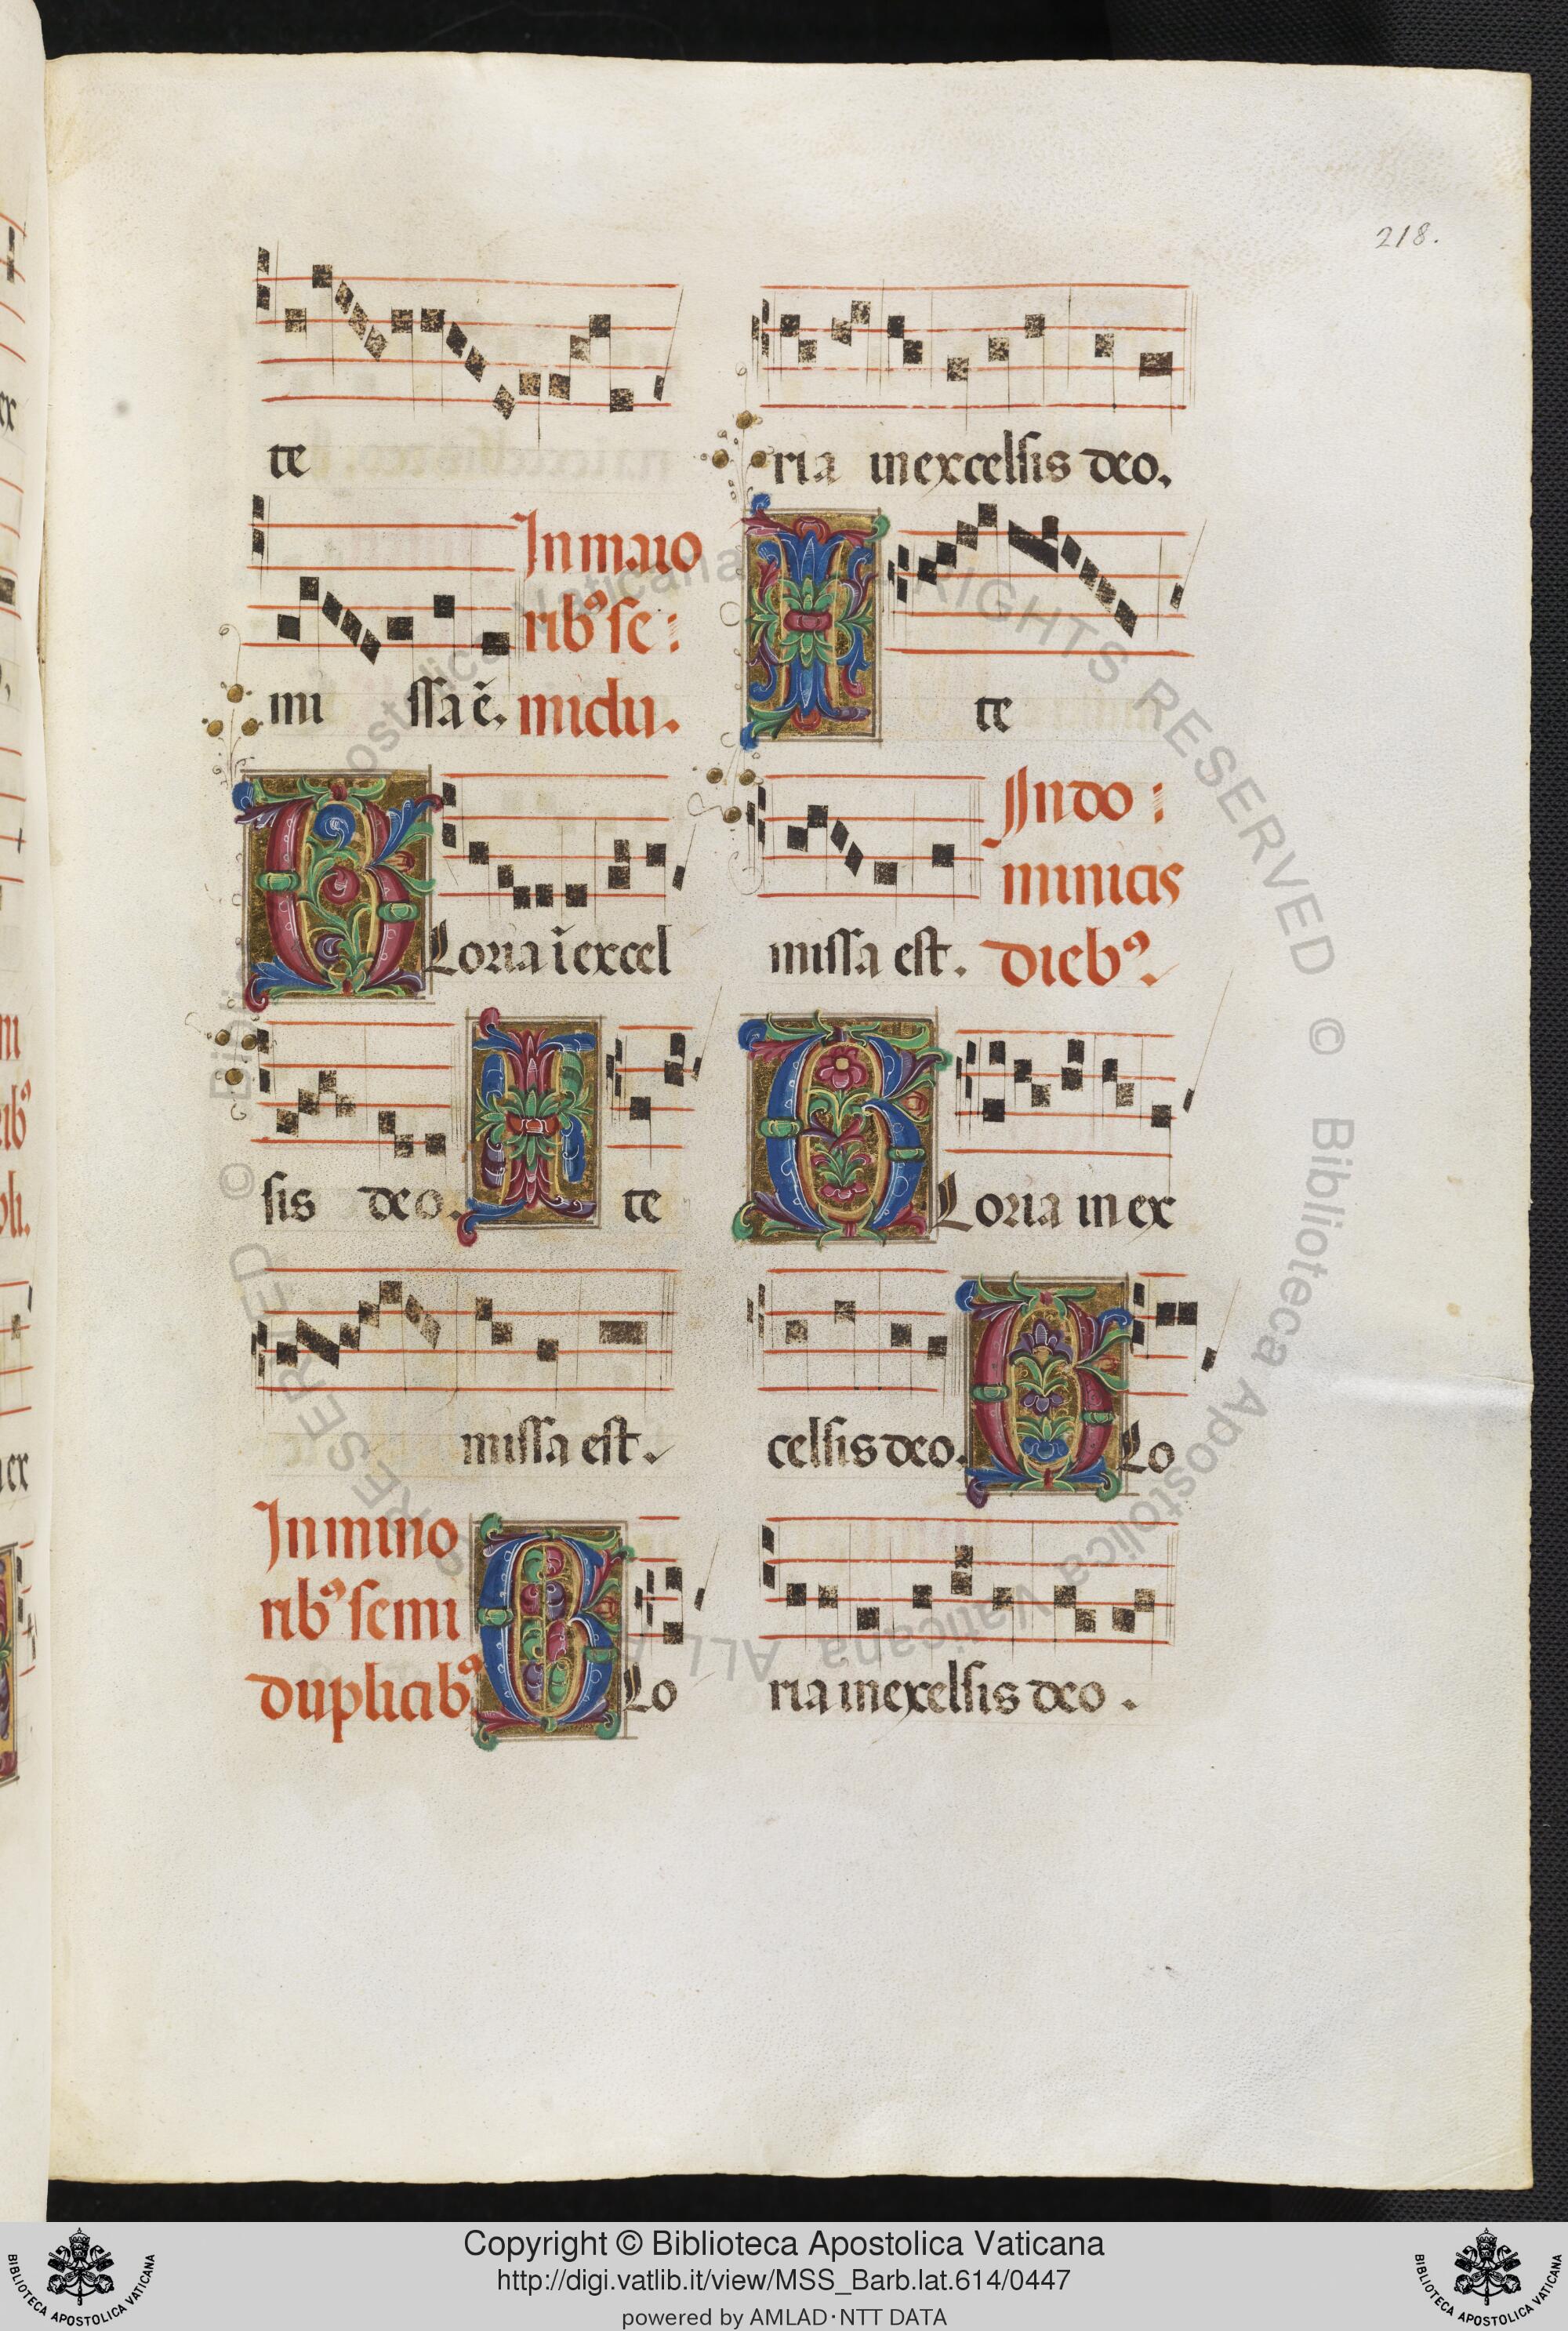 218.
te
In maio
ribꝰ se:
mi ssa ē. midu.
GLoria ī excel
sis deo. Ite
missa est.
In mino
ribꝰ semi
duplicibꝰ. GLo
ria in excelsis deo.
Ite
In do:
minicis
missa est. diebꝰ.
GLoria in ex
celsis deo. GLo
ria in exelsis deo.
© Biblioteca Apostolica Vaticana ALL RIGHTS RESERVED
Copyright © Biblioteca Apostolica Vaticana
http://digi.vatlib.it/view/MSS_Barb.lat.614/0447
powered by AMLAD·NTT DATA
BIBLIOTECA APOSTOLICA VATICANA
BIBLIOTECA APOSTOLICA VATICANA